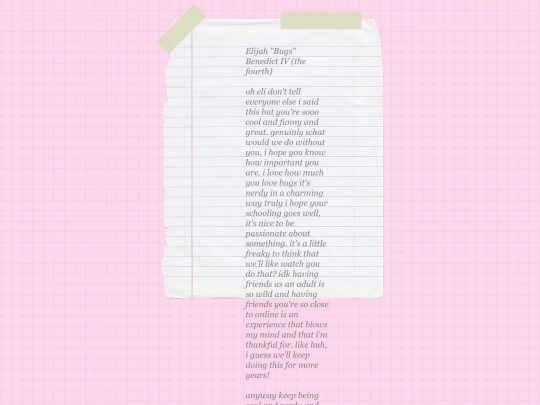 Elijah "Bugs"
Benedict IV (the
fourth)
oh eli don't tell
everyone else i said
this but you're sooo
cool and funny and
great. genuinly what
would we do without
you, i hope you know
how important you
are. i love how much
you love bugs it's
nerdy in a charming
way truly i hope your
schooling goes well,
it's nice to be
passionate about
something. it's a little
freaky to think that
we'll like watch you
do that? idk having
friends as an adult is
so wild and having
friends you're so close
to online is an
experience that blows
my mind and that i'm
thankful for. like huh,
i guess we'll keep
doing this for more
years!
anyway keep being
cool and nerdy and